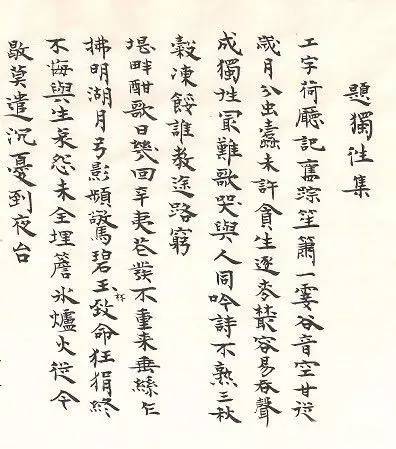 題獨往集
工字荷廳記舊踪笙簫一霎谷音空甘從
歲月分虫蠹未許貪生逐麥叢容易吞聲
成獨往最難歌哭與人同吟詩不熟三秋
穀凍餒誰教途路窮
堤畔酣歌日幾回辛夷花發不重來垂絲乍
拂明湖月弓影頻驚碧玉杯致命狂狷終
不悔與生哀怨未全埋簷冰爐火從今
莫遣沉憂到夜台